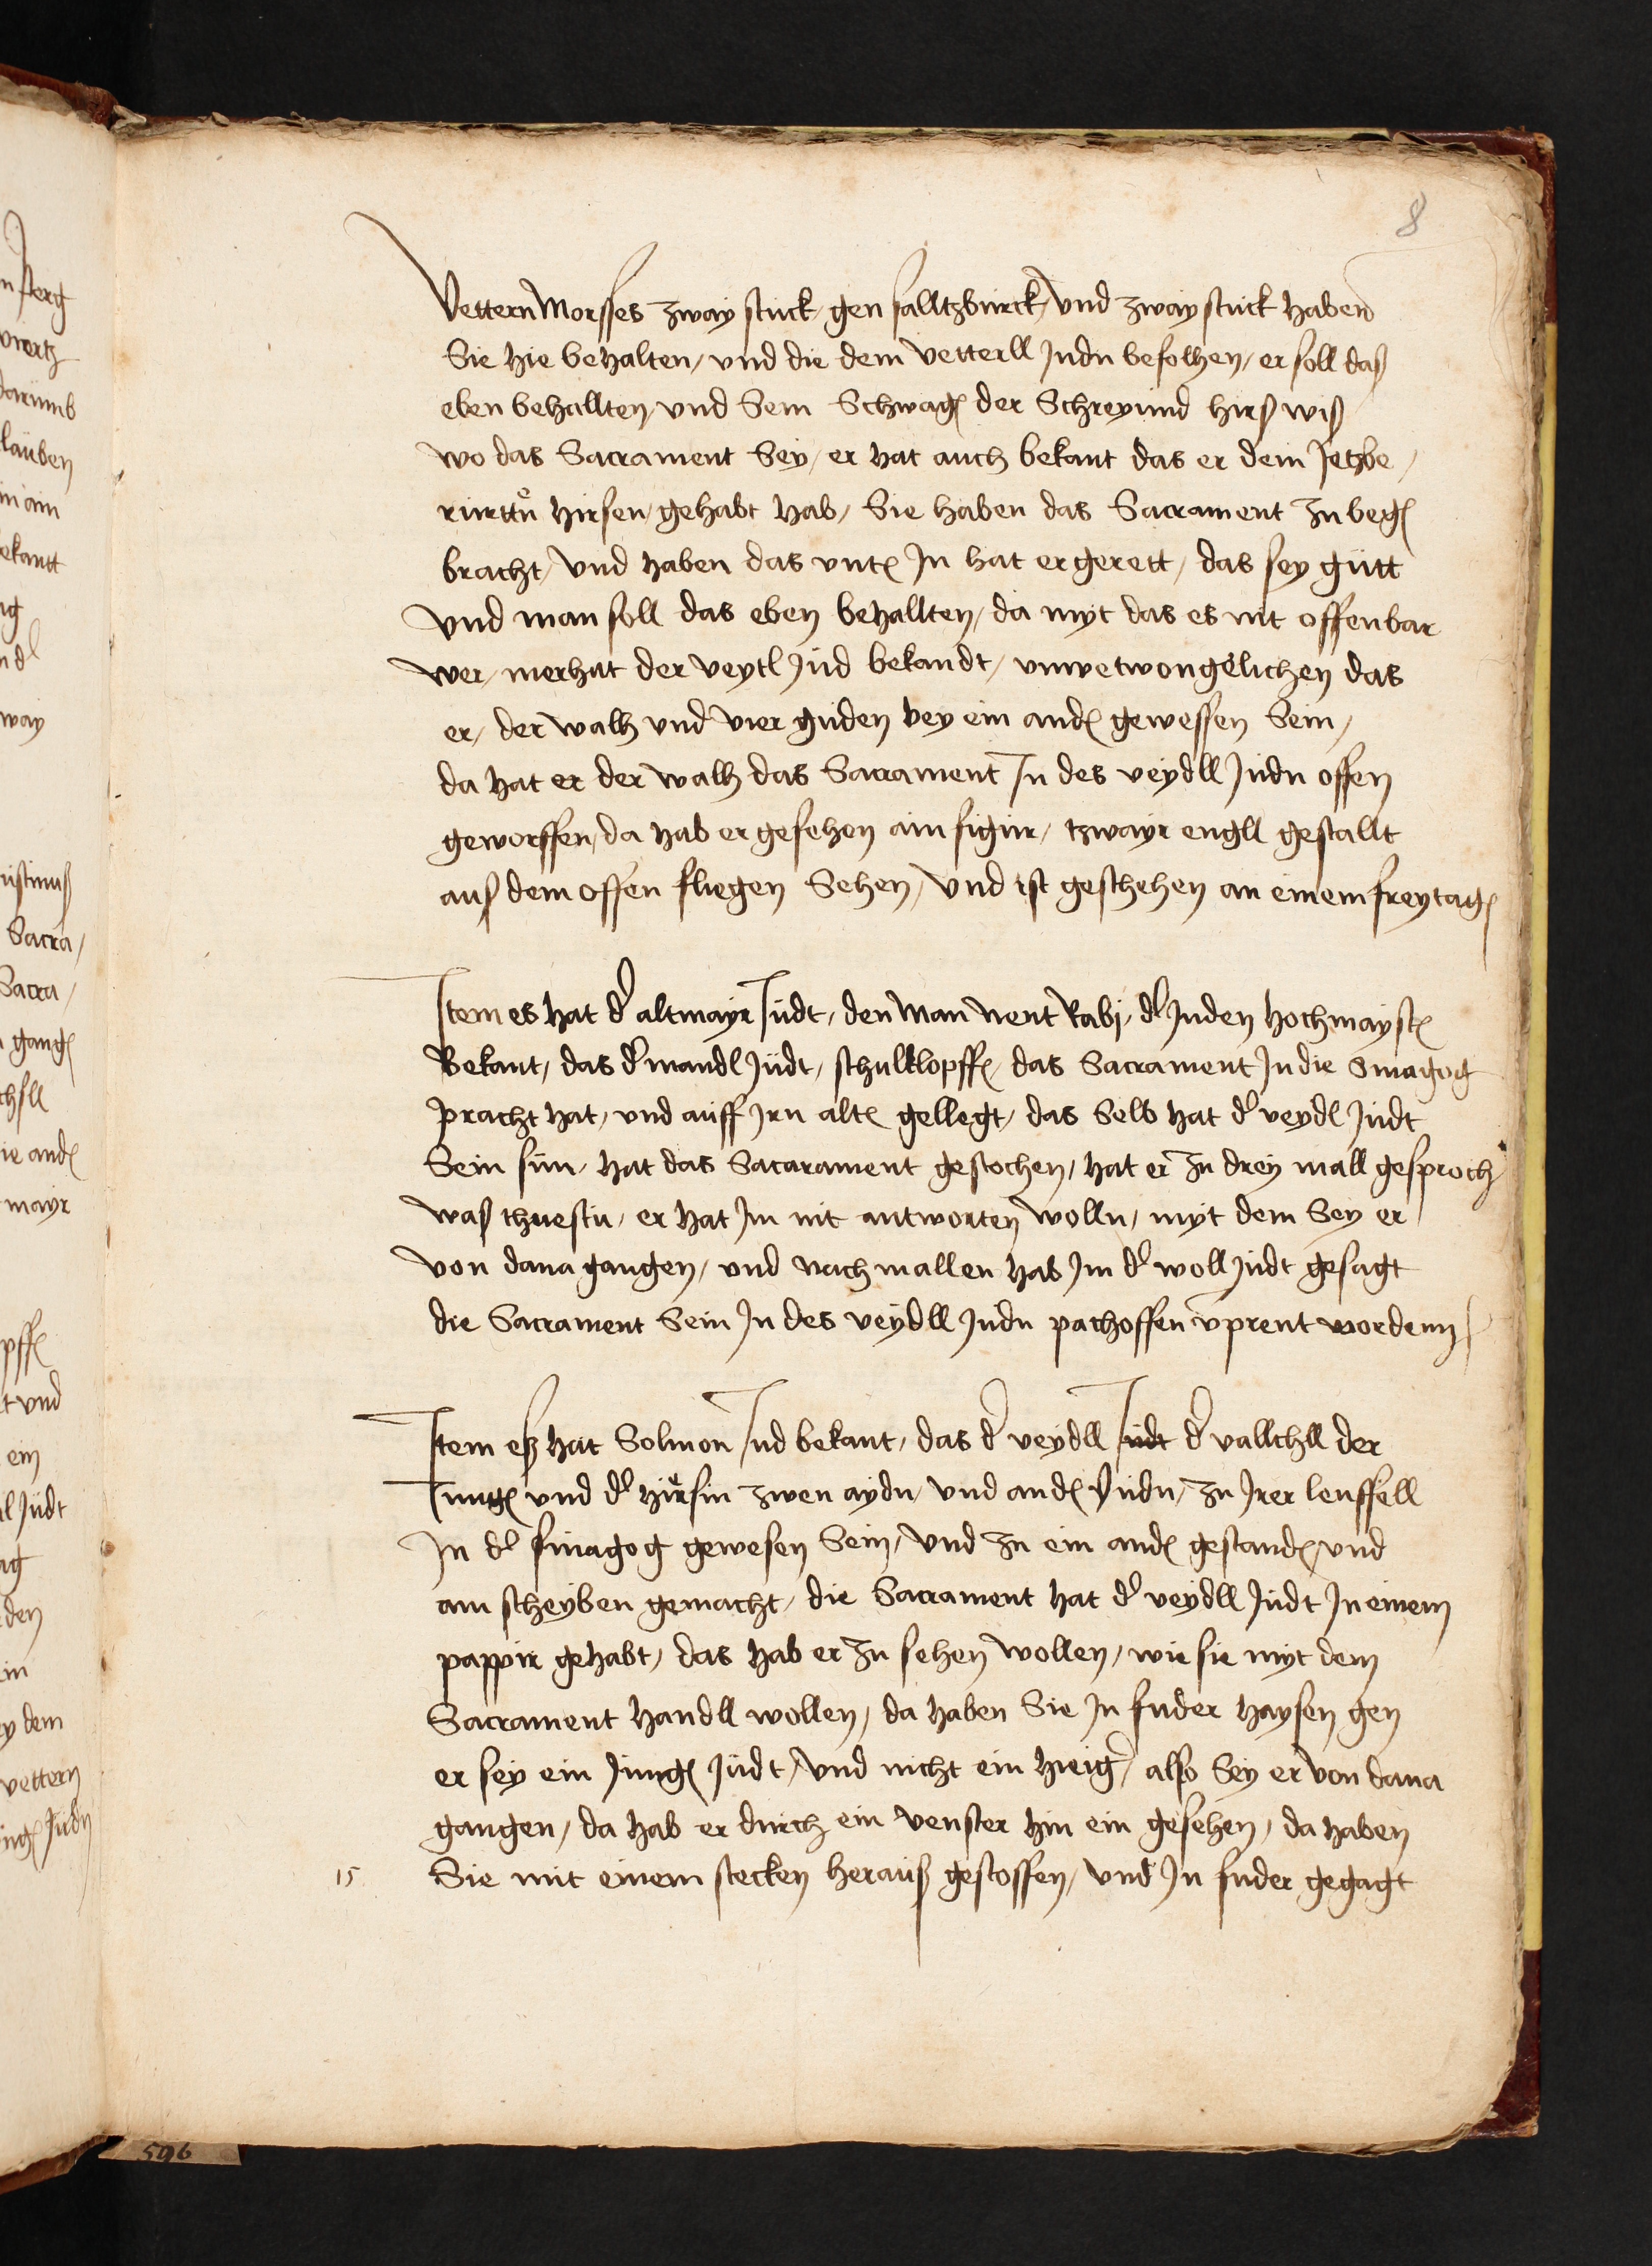 8
Vettern Morsses zway stuck / gen salltzburck / vnd zway stuck haben
Sie hie behalten / vnd die dem vetterll Judn befolhen / er soll daß
eben behallten / vnd Sein Schwag der Schreyind hirß wiß
wo das Sacrament Sey / er hat auch bekant das er dem Jetzbe /
rurttn hirsen / gehabt hab / Sie haben das Sacrament zu weg
bracht / vnd haben das vnt In hat er gerett / das sey gůtt
vnd man soll das eben behallten / da myt das es nit offenbar
wer / mer hat der veytl Jud bekandt / vnwetwongelichen das
er / der walh vnd vier guden bey ein and gewessen Sein /
da hat er der walh das Sacrament In des veydll Judn offen
geworffen / da hab er gesehen ain figur / tzwayr engll gestallt
auß dem offen fliegen Sehen / vnd ist geschehen an einem freytag
Item es hat d altmayr Judt / den Man Nent Rabi / d Juden hochmayst
Bekant / das d mandl Judt / schulklopff / das Sacrament In die Sinagog
pracht hat / vnd auff Irn alt gellegt / das Selb hat d veydl Judt
Sein sun / hat das Sacarament gestochen / hat er zu drey mall gesproch
waß thuestu / er hat Im nit antworten wolln / myt dem Sey er
von dana gangen / vnd nach mallen hab Im d woll Judt gesagt
die Sacrament Sein In des veydll Judn pachoffen vprent wordenn
Item eß hat Solmon Jud bekant / das d veydll Judt d vallchll der
Jung vnd d hirsin zwen aydn / vnd and Judn / zu Irer leuffell
In d sinagog gewesen Sein / vnd zu ein and gestand / vnd
ain scheyben gemacht / die Sacrament hat d veydll Judt In einem
pappir gehabt / das hab er zu sehen wollen / wie sie myt dem
Sacrament handll wollen / da haben Sie In fuder haysen gen
er sey ein Jung Judt / vnd nicht ein hieig / also Sey er von dana
gangen / da hab er durch ein venster hin ein gesehen / da haben
15 Sie mit einem stecken herauß gestossen / vnd In fuder gegagt
596